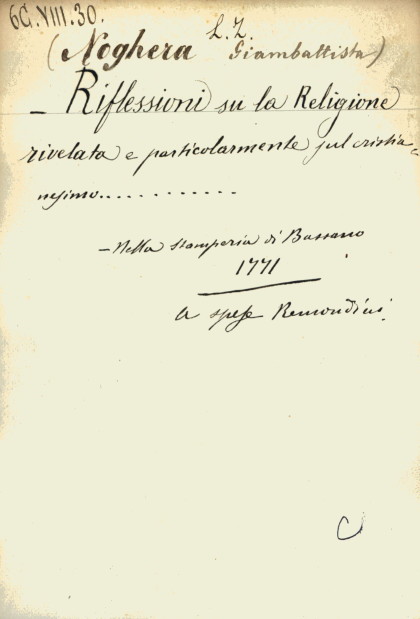 6C.VIII.30.
(Noghera Giambattista)
– Riflessioni su la Religione
rivelata e particolarmente sul cristia-
nesimo............
– Nella stamperia di Bassano
1771
a spese Remondini.
C